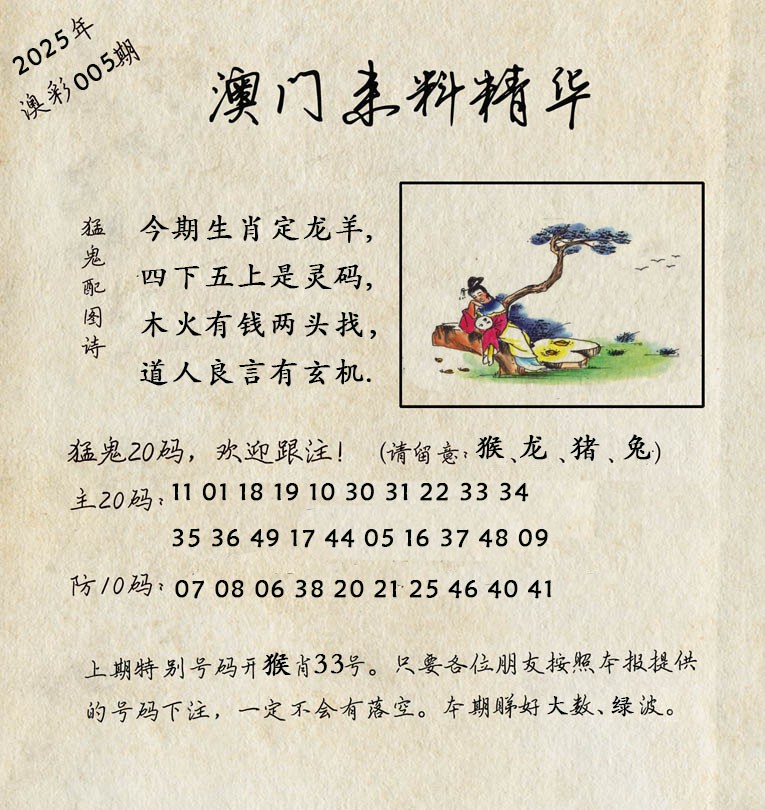 2025年
澳彩005期
澳门来料精华
猛鬼配图诗
今期生肖定龙羊,
四下五上是灵码,
木火有钱两头找,
道人良言有玄机.
猛鬼20码，欢迎跟注！ (请留意:猴、龙、猪、兔)
主20码: 11 01 18 19 10 30 31 22 33 34
35 36 49 17 44 05 16 37 48 09
防10码: 07 08 06 38 20 21 25 46 40 41
上期特别号码开猴肖33号。只要各位朋友按照本报提供
的号码下注，一定不会有落空。本期睇好大数、绿波。